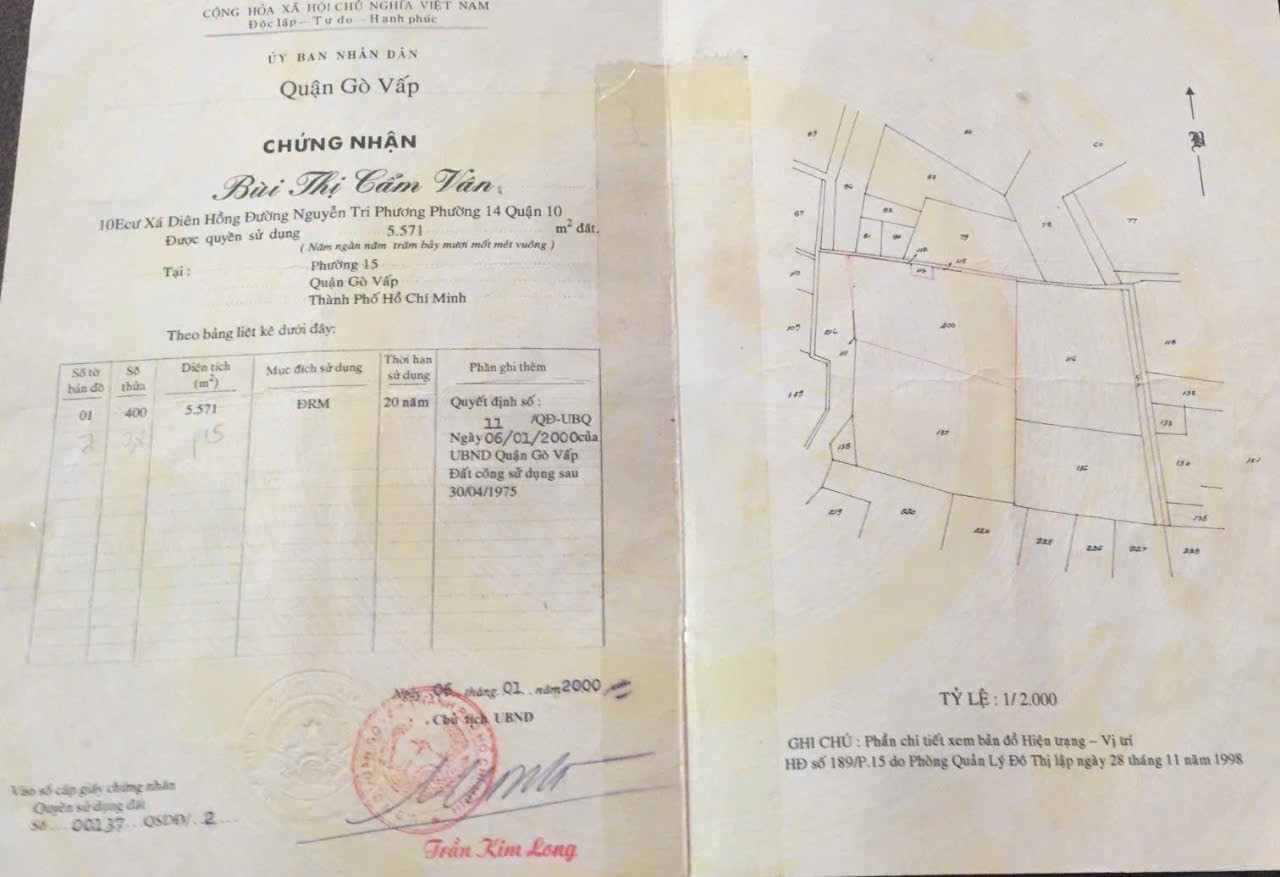 CỘNG HÒA XÃ HỘI CHỦ NGHĨA VIỆT NAM
Độc lập – Tự do – Hạnh phúc
ỦY BAN NHÂN DÂN
Quận Gò Vấp
CHỨNG NHẬN
Bùi Thị Cẩm Vân
10Ecư Xá Diên Hồng Đường Nguyễn Tri Phương Phường 14 Quận 10
Được quyền sử dụng 5.571 m² đất.
( Năm ngàn năm trăm bảy mươi mốt mét vuông )
Tại : Phường 15
Quận Gò Vấp
Thành Phố Hồ Chí Minh
Theo bảng liệt kê dưới đây:
Số tờ bản đồ Số thửa Diện tích (m²) Mục đích sử dụng Thời hạn sử dụng Phần ghi thêm
01 400 5.571 ĐRM 20 năm Quyết định số :
11 /QĐ-UBQ
Ngày 06/01/2000 của
UBND Quận Gò Vấp
Đất công sử dụng sau
30/04/1975
Ngày 06 tháng 01 năm 2000
Chủ tịch UBND
Trần Kim Long
Vào sổ cấp giấy chứng nhận
Quyền sử dụng đất
Số 00137 QSDĐ/ 2
B
60
77
78
79
83
82
81
80
87
112
115
113
400
116
137
136
138
118
132
133
135
219
220
225
226
227
TỶ LỆ : 1/ 2.000
GHI CHÚ : Phần chi tiết xem bản đồ Hiện trạng – Vị trí
HĐ số 189/P.15 do Phòng Quản Lý Đô Thị lập ngày 28 tháng 11 năm 1998